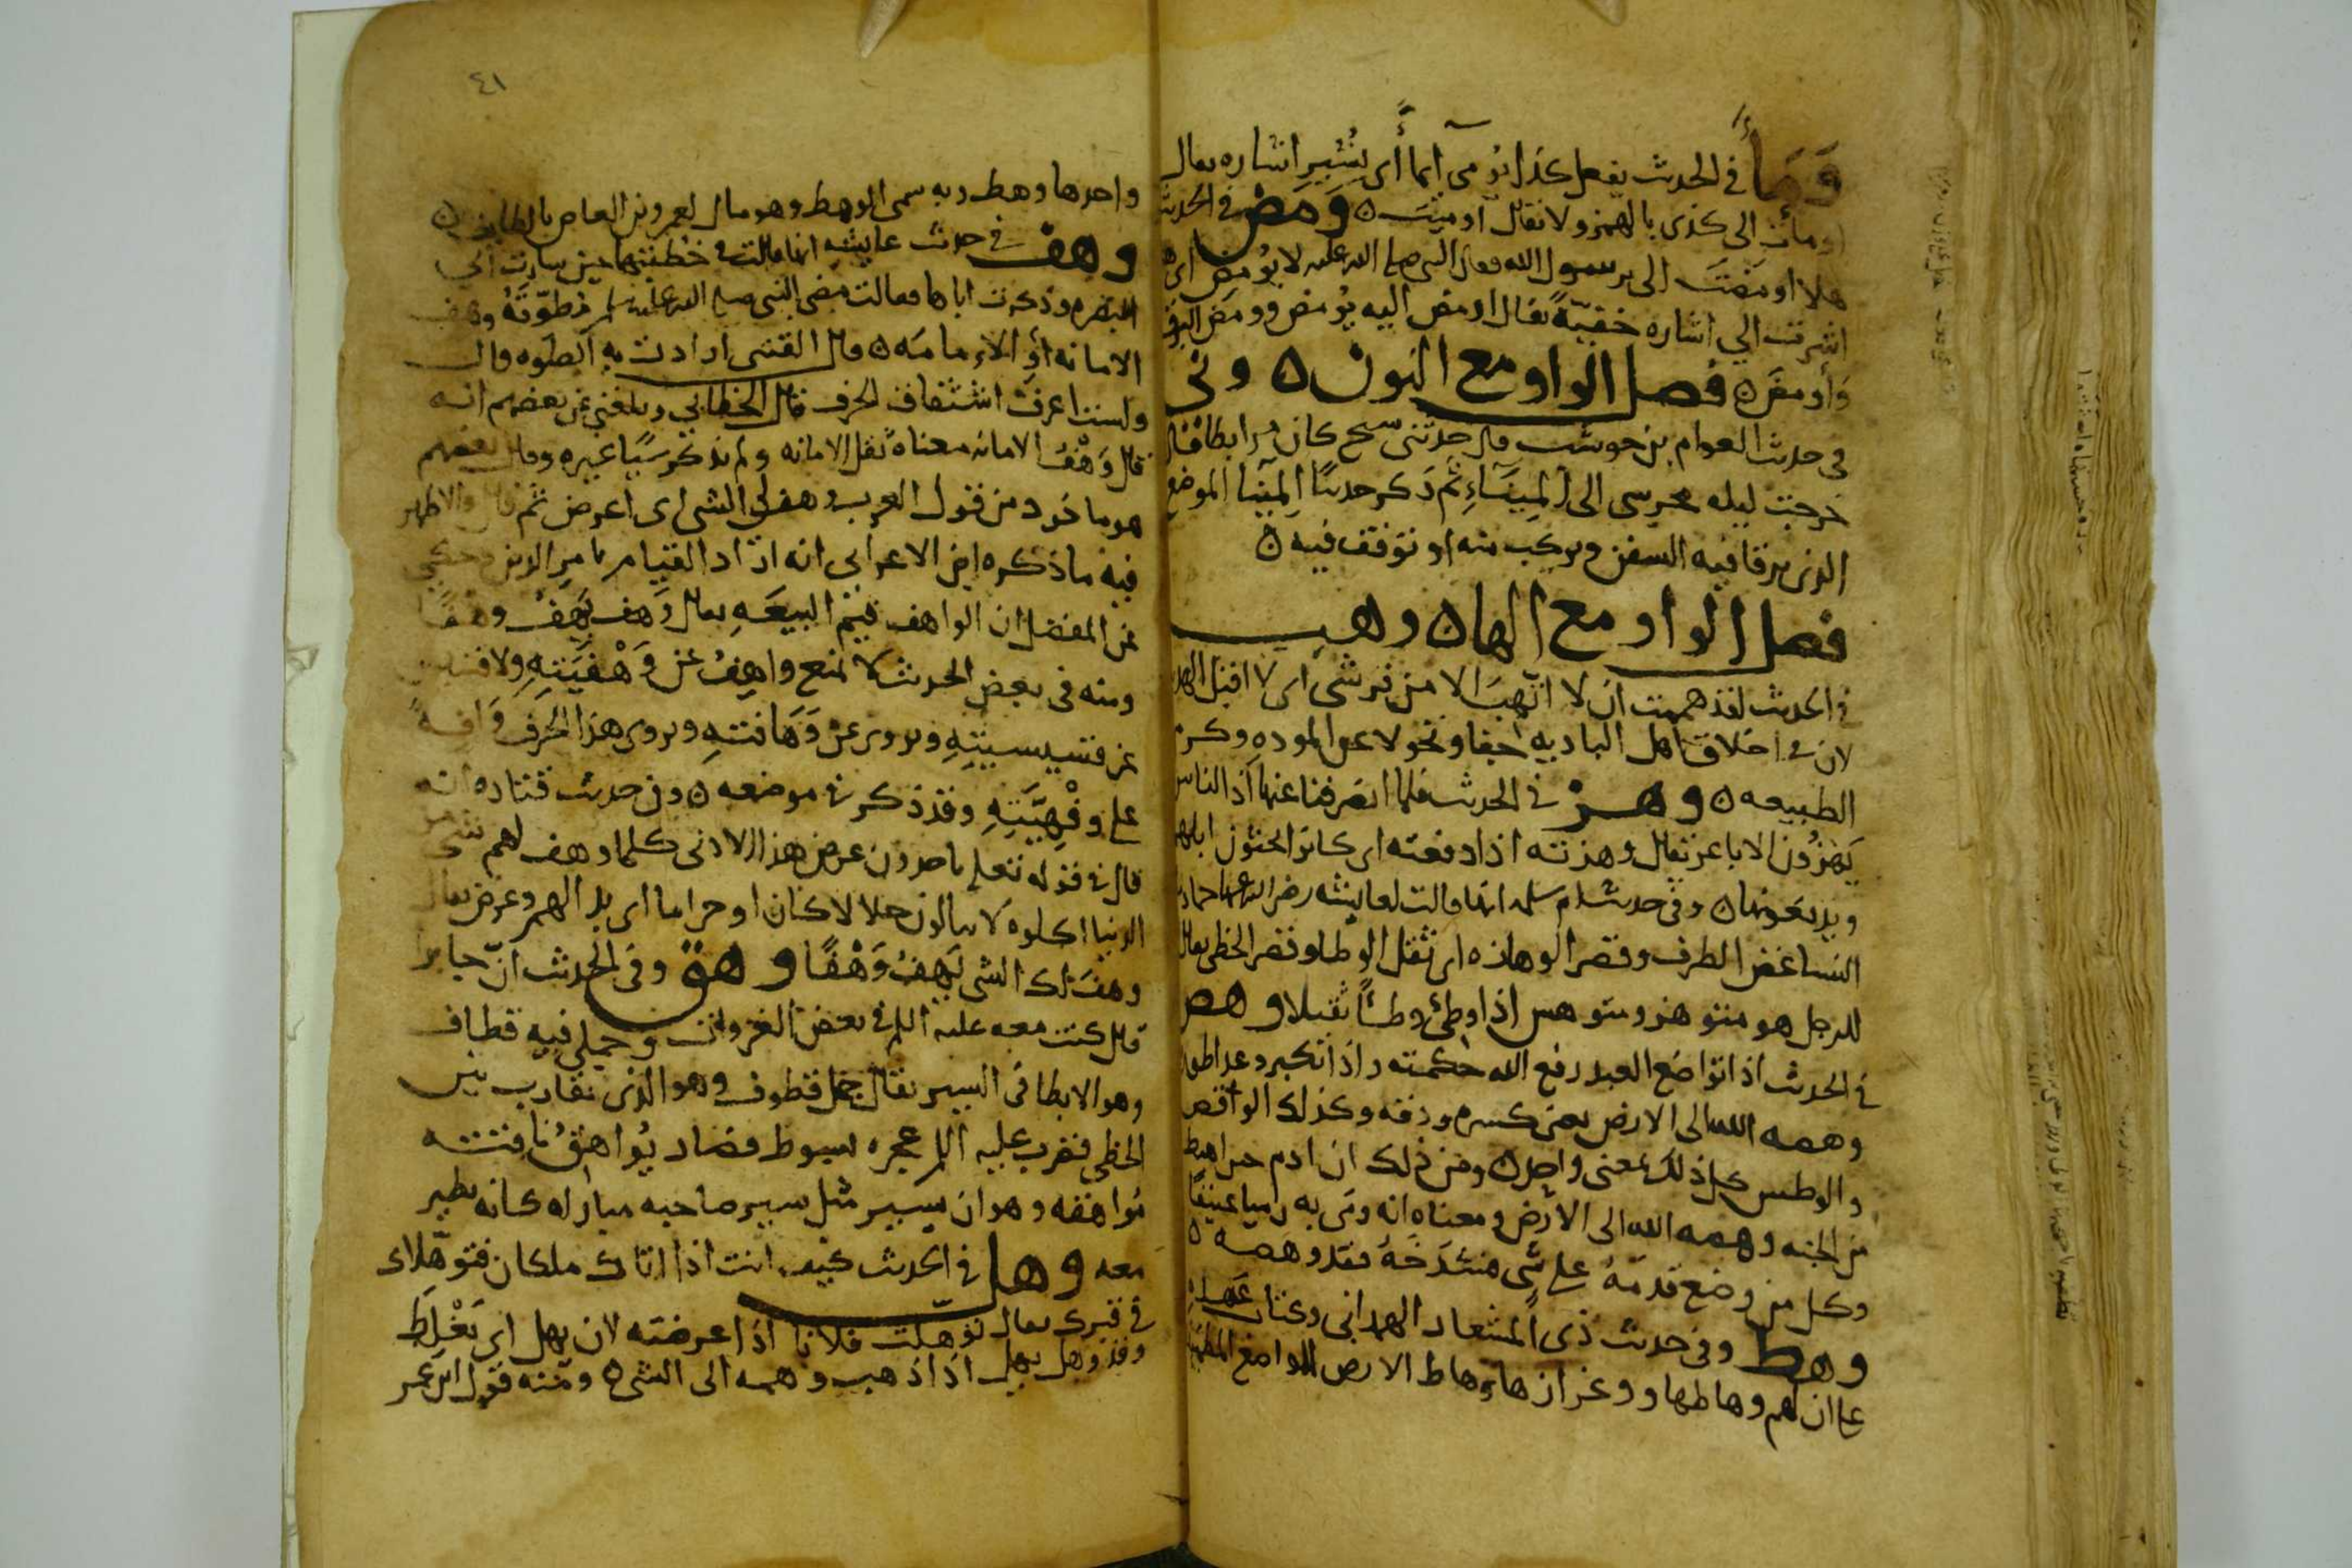 وَمَأَ في الحدث يفعل كذا يُومى ايماءً أى يُشير اشاره يقال
اومأت الى كذى بالهمز ولا نقال اوميت ٥ وَمَضَ في الحدث
هلا اومضتَ الى يرسول الله فقال النبى صلى الله عليه لا يُومض اى
اشرت الي اشاره خفيّةً يقال اومض اليه يُومض وومَض البرق
وَأومضَ ٥ فصل الواو مع النون ٥ ونى
فى حدث العوام بن حوشب قال حدثنى شيخ كان مرابطا قال
خرجت ليله محرسى الى المِينَاءِ ثم ذكر حديثًا المِينا الموضع
الذى ترفا فيه السفن ويركب منه او توقف فيه ٥
فصل الواو مع الها ٥ وهب
في الحدث لقد هممت ان لا اتهبَ الا من قرشى اى لا اقبل الهد
لان في اخلاق اهل الباديه جفا ونحولا عن الموده وكرم
الطبيعه ٥ وهز في الحدث فلما انصرفنا عنها اذ الناس
يَهِزُون الاباعر يقال وهزته اذا دفعته اى كانوا يحثون ابلهم
ويدفعونها ٥ وفى حدث ام سلمه انها قالت لعايشه رضى الله عنها حماد
النسا غض الطرف وقصر الوهازه اى ثقل الوطا وقصر الخطى يقال
للرجل هو متوهز ومتوهس اذا وطئ وطئًا ثقيلا وهص
في الحدث اذا تواضع العبد رفع الله حكمته واذا تكبر وعدا طوره
وهصه الله الى الارض يعنى كسره ودقه وكذلك الوقص
والوطس كل ذلك بمعنى واحد ٥ ومن ذلك ان ادم حين اهبط
من الجنه وهصه الله الى الارض ومعناه انه رمى به رميا عنيفًا
وكل من وضع قدمَهُ على شى منشدخَهُ فقد وهصه ٥
وهط وفى حدث ذى المشعار الهمدانى وعثان
على ان لهم وهاطها وعزازها وهاط الارض المواضع المطمينه
٤١
واحدها وهط وبه سمى الوهط وهو مال لعمرو بن العاص بالطايف ٥
وهف في حدث عايشه انها قالت في خطبتها حين سارت الى
البصره وذكرت اباها فقالت مضى النبى صلى الله عليه وسلم فطوّقَهُ وهف
الامانه أو الامامه ٥ قال القتبى ارادت به الطوق قال
ولست اعرف اشتقاق الحرف قال الخطابي وبلغني عن بعضهم انه
قال وَهْفُ الامانه معناه ثقل الامانه ولم يذكر شيًا غيره وقال بعضهم
هو ماخوذ من قول العرب وهف لي الشى اى اعرض ثم قال والاظهر
فيه ما ذكره ابن الاعرابى انه اراد القيام بامر الدين وحكي
عن المفضل ان الواهف قيم البيعَهِ يقال وَهف يَهِفُ وهفًا
ومنه فى بعض الحدث لا يمنع واهِفُ عن وَهْفِيَّتِهِ ولا قسيس
عن قسيسيتِهِ ويروى عن وَهَافتهِ ويروى هذا الحرف وَافِهً
على وفْهِيَّتِهِ وقد ذكر في موضعه ٥ وفي حدث قتاده انه
قال في قوله تعلى ياخذون عرض هذا الادنى كلما وهف لهم شى من
الدنيا اكلوه لا يبالون حلالا كان او حراما اى بدا لهم وعرض يقال
وهف لك الشى يَهِفُ وَهْفًا وهق وفى الحدث انّ جابرا
قال كنت معه عليه السلم في بعض الغزوات وجملي فيه قطاف
وهو الابطا فى السير يقال جمل قطوف وهو الذى يقارب بين
الخطى فضرب عليه السلم عجزه بسوط فصار يُواهِقُ ناقته
مُواهقه وهو ان يسير مثل سير صاحبه مباراه كانه يطير
معه وهل في الحدث كيف انت اذا اتاك ملكان فتوهّلاك
في قبرك يقال توهلت فلانا اذا عرضته لان يهل اى يَغْلَطَ
وقد وهل يهل اذا ذهب وهمه الى الشى ٥ ومنه قول ابن عمر